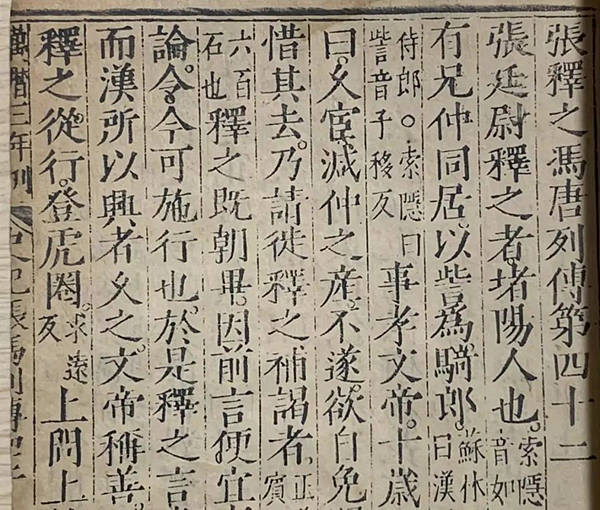 張釋之馮唐列傳第四十二
張廷尉釋之者。堵陽人也。索隱音如
有兄仲同居。以訾爲騎郎。蘇林曰漢
侍郎〇索隱曰訾音子移反事孝文帝。十歲
曰。久宦。減仲之産。不遂。欲自免
惜其去。乃請徙釋之補謁者。正賓
六百石也釋之既朝畢。因前言便宜
論。令今可施行也。於是釋之言
而漢所以興者久之。文帝稱善。
釋之從行。登虎圈。求遠反上問上
萬曆三年刊 史記張馮列傳